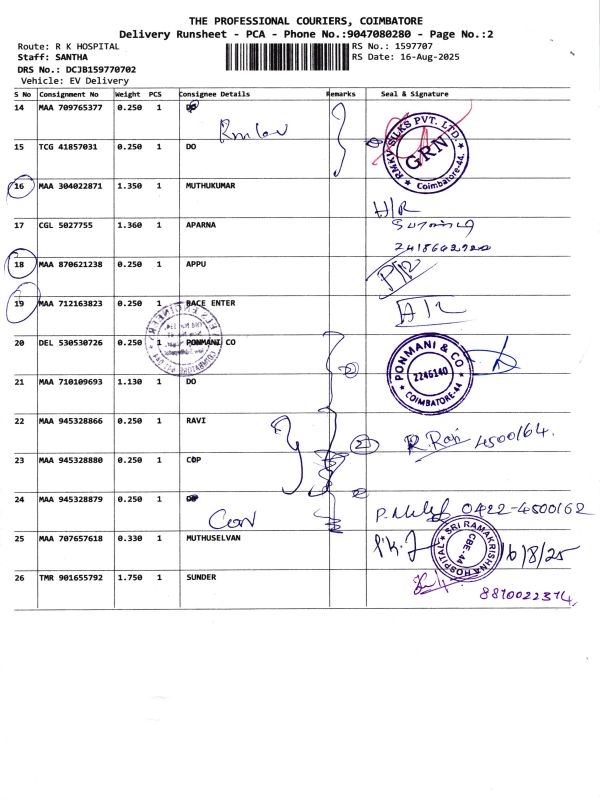 THE PROFESSIONAL COURIERS, COIMBATORE
Delivery Runsheet - PCA - Phone No.:9047080280 - Page No.:2
Route: R K HOSPITAL RS No.: 1597707
Staff: SANTHA RS Date: 16-Aug-2025
DRS No.: DCJB159770702
Vehicle: EV Delivery
S No Consignment No Weight PCS Consignee Details Remarks Seal & Signature
14 MAA 709765377 0.250 1 DO
RMKV SILKS PVT. LTD.
GRN
Coimbatore-44.
15 TCG 41857031 0.250 1 DO
16 MAA 304022871 1.350 1 MUTHUKUMAR
A/R
17 CGL 5027755 1.360 1 APARNA
18 MAA 870621238 0.250 1 APPU
19 MAA 712163823 0.250 1 RACE ENTER
20 DEL 530530726 0.250 1 PONMANI CO
PONMANI & CO
2246140
COIMBATORE-44
21 MAA 710109693 1.130 1 DO
22 MAA 945328866 0.250 1 RAVI
R. Ravi 4500164.
23 MAA 945328880 0.250 1 COP
24 MAA 945328879 0.250 1
0422-4500162
25 MAA 707657618 0.330 1 MUTHUSELVAN
SRI RAMAKRISHNA HOSPITAL
CBE-44
16/8/25
26 TMR 901655792 1.750 1 SUNDER
8870022374